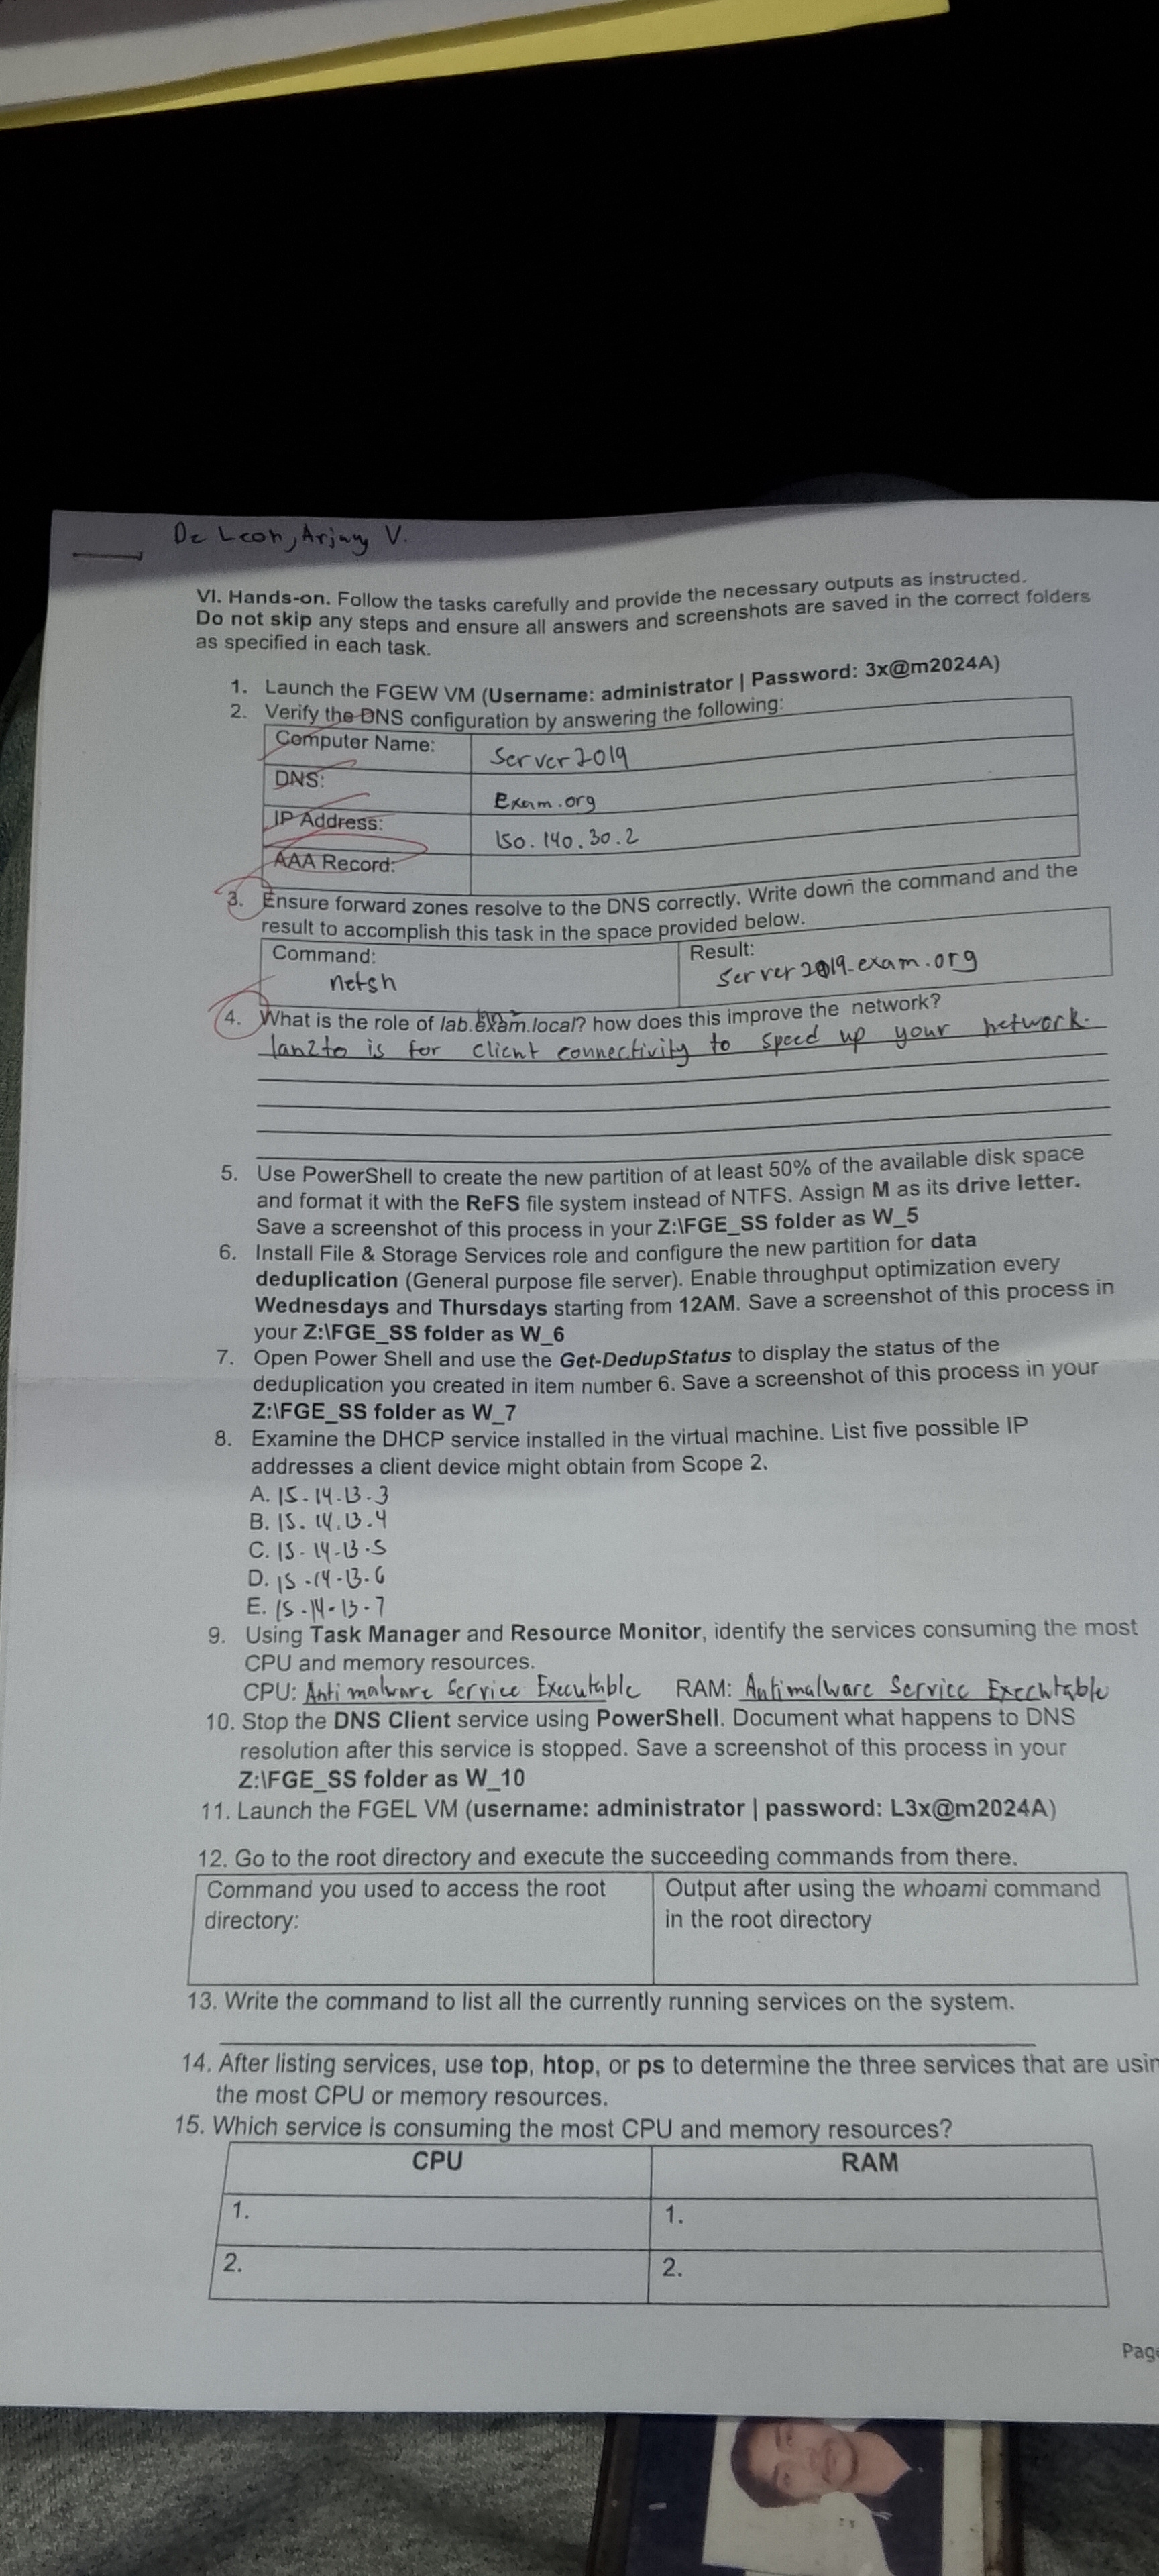 De Leon, Arjay V.
VI. Hands-on. Follow the tasks carefully and provide the necessary outputs as instructed.
Do not skip any steps and ensure all answers and screenshots are saved in the correct folders
as specified in each task.
1. Launch the FGEW VM (Username: administrator | Password: 3x@m2024A)
2. Verify the DNS configuration by answering the following:
Computer Name: Server2019
DNS: Exam.org
IP Address: 150.140.30.2
AAA Record:
3. Ensure forward zones resolve to the DNS correctly. Write down the command and the
result to accomplish this task in the space provided below.
Command: Result:
netsh server2019.exam.org
4. What is the role of lab.exam.local? how does this improve the network?
is for client connectivity to speed up your network.
5. Use PowerShell to create the new partition of at least 50% of the available disk space
and format it with the ReFS file system instead of NTFS. Assign M as its drive letter.
Save a screenshot of this process in your Z:\FGE_SS folder as W_5
6. Install File & Storage Services role and configure the new partition for data
deduplication (General purpose file server). Enable throughput optimization every
Wednesdays and Thursdays starting from 12AM. Save a screenshot of this process in
your Z:\FGE_SS folder as W_6
7. Open Power Shell and use the Get-DedupStatus to display the status of the
deduplication you created in item number 6. Save a screenshot of this process in your
Z:\FGE_SS folder as W_7
8. Examine the DHCP service installed in the virtual machine. List five possible IP
addresses a client device might obtain from Scope 2.
A. 15.14.13.3
B. 15.14.13.4
C. 15.14.13.5
D. 15.14.13.6
E. 15.14.13.7
9. Using Task Manager and Resource Monitor, identify the services consuming the most
CPU and memory resources.
CPU: Antimalware Service Executable RAM: Antimalware Service Executable
10. Stop the DNS Client service using PowerShell. Document what happens to DNS
resolution after this service is stopped. Save a screenshot of this process in your
Z:\FGE_SS folder as W_10
11. Launch the FGEL VM (username: administrator | password: L3x@m2024A)
12. Go to the root directory and execute the succeeding commands from there.
Command you used to access the root Output after using the whoami command
directory: in the root directory
13. Write the command to list all the currently running services on the system.
14. After listing services, use top, htop, or ps to determine the three services that are usin
the most CPU or memory resources.
15. Which service is consuming the most CPU and memory resources?
CPU RAM
1. 1.
2. 2.
Page